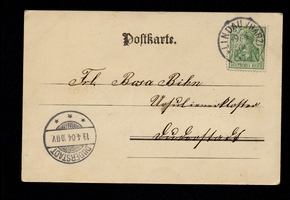 Postkarte.
LINDAU (HARZ)
Frl. Rosa Bihn
Ursulinenkloster
Duderstadt
DUDERSTADT
13.4.04.